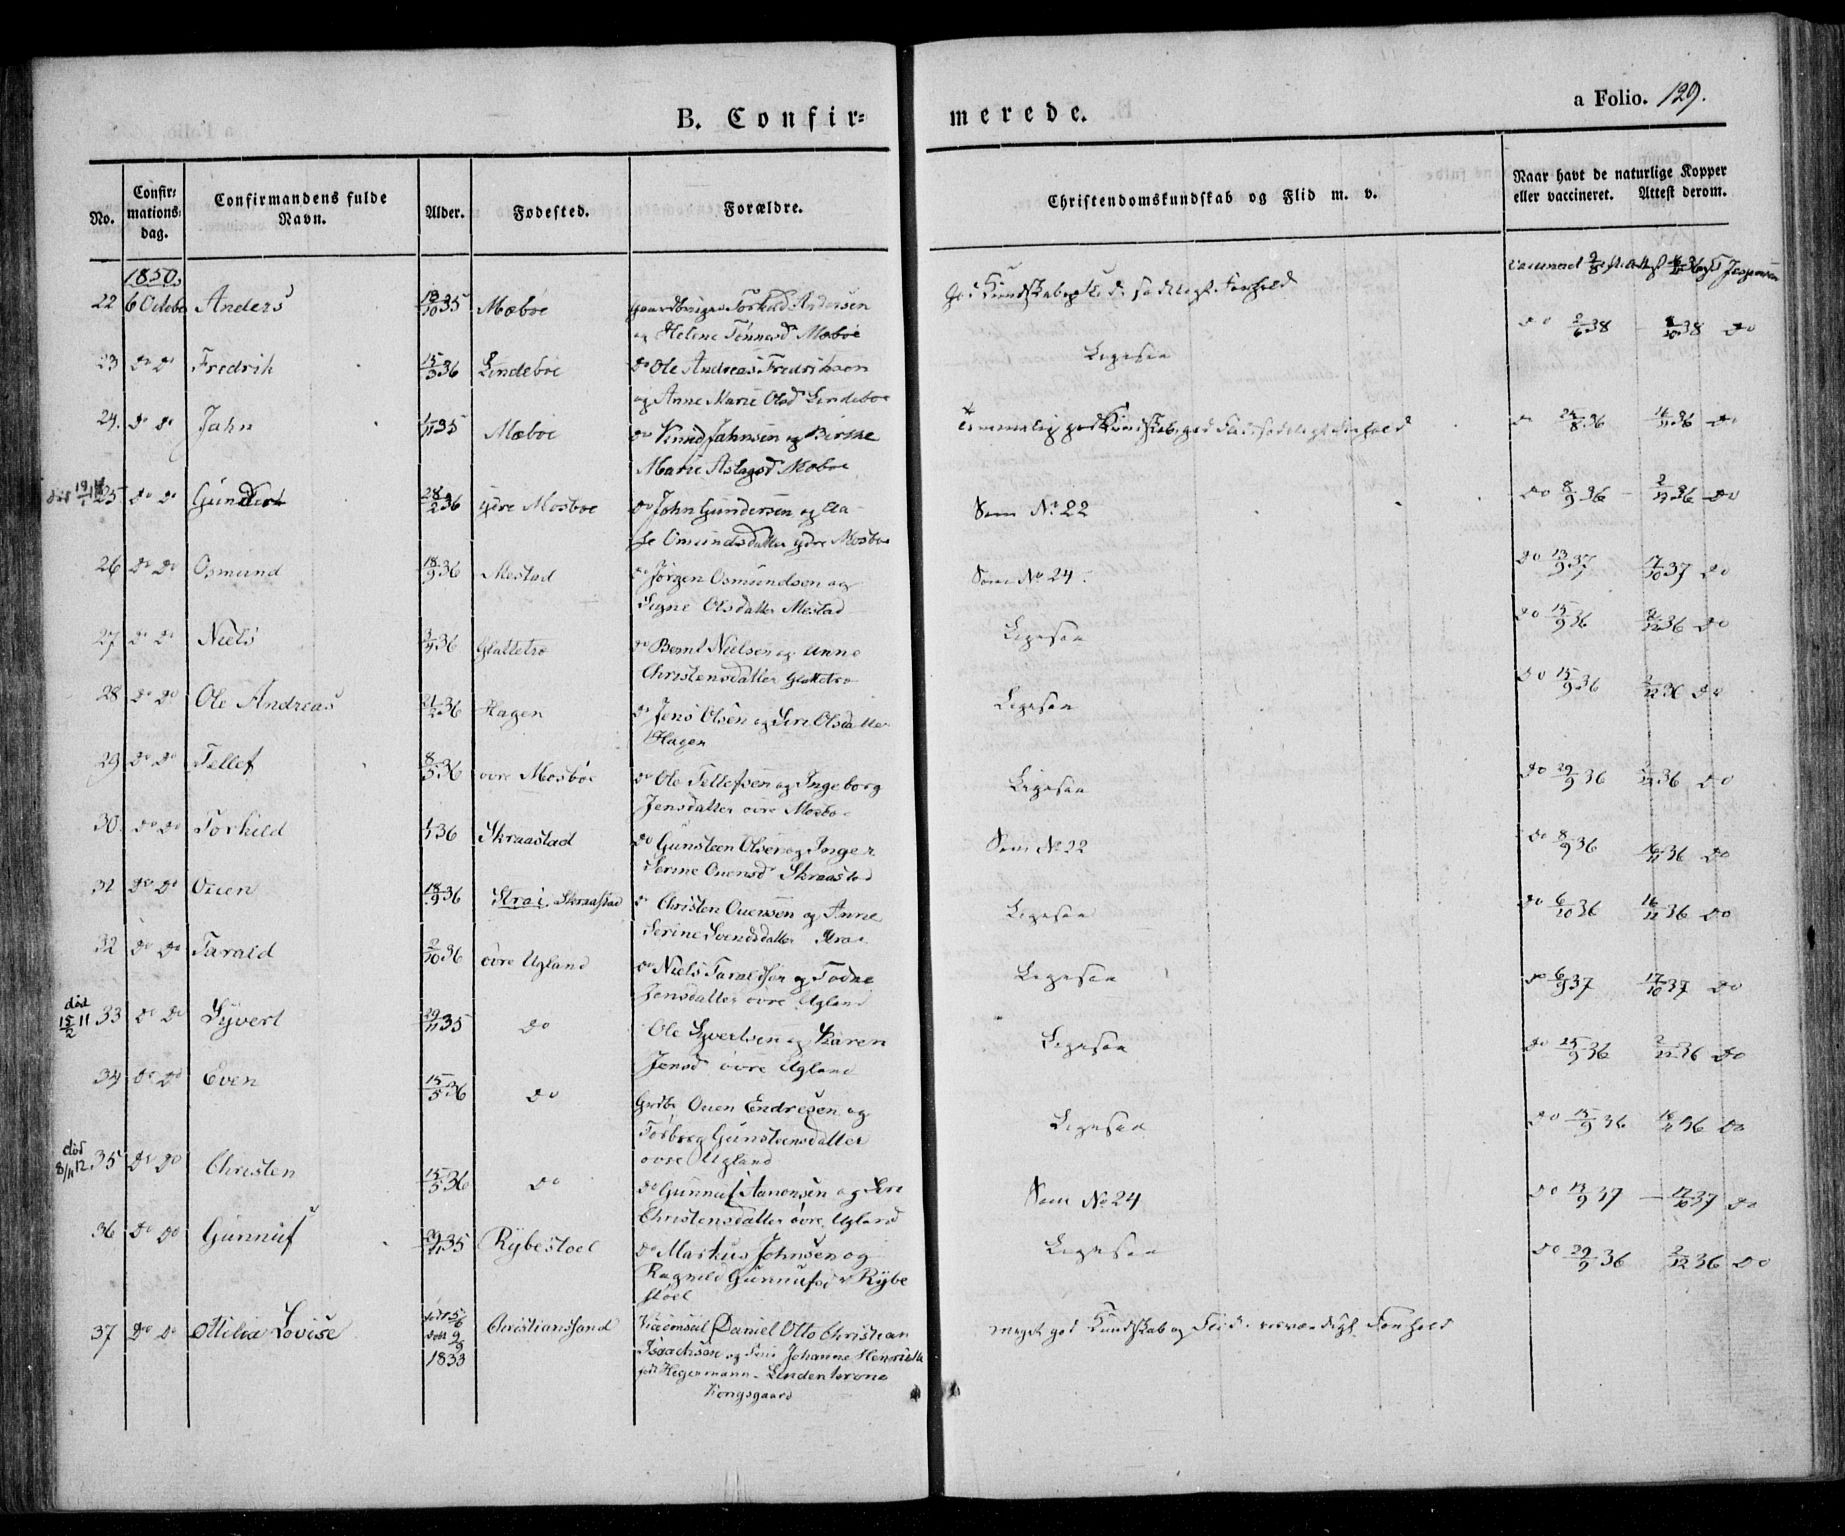 B. Confir-
merede.
a Folio. 129.
No.
Confir-
mations-
dag.
Confirmandens fulde
Navn.
Alder.
Fødested.
Forældre.
Christendomskundskab og Flid m. v.
Naar havt de naturlige Kopper
eller vaccineret. Attest derom.
1850.
22 6 October Anders 18/10 35 Mæboe Torkild Andersen
og Helene Tønnesd Mæboe
God Kundskab og Flid sædeligt Forhold
do 2/6 38 8/10 38 do
23 do do Fredrik 15/3 36 Lindeboe do Ole Andreas Fredriksen
og Anne Marie Olsd Lindeboe
Ligesaa
24. do do Jahn 1/11 35 Mæboe do Knud Jahnsen og Birthe
Marie Aslagsd Mæboe
Temmelig god Kundskab, god Flid, sædeligt Forhold
do 24/8 36 16/11 36 do
25 do do Gunder 28/2 36 ydre Mosboe do John Gundersen og Aa-
se Omundsdatter ydre Mosboe
Som No 22
do 8/9 36 - 2/12 36 do
26 do do Osmund 18/9 36 Mestad do Jørgen Osmundsen og
Signe Olsdatter Mestad
Som No 24.
do 13/9 37 17/10 37 do
27 do do Niels 3/4 36 Glattetre do Bernt Nielsen og Anne
Christensdatter Glattetre
Ligesaa
do 15/9 36 2/12 36 do
28 do do Ole Andreas 21/2 36 Hagen do Jens Olsen og Siri Olsdatter
Hagen
Ligesaa
do 15/9 36 2/12 36 do
29 do do Tellef 8/5 36 øvre Mosboe do Ole Tellefsen og Ingeborg
Jensdatter øvre Mosbo
Ligesaa
do 29/9 36 2/12 36 do
30. do do Torkild 1/1 36 Skraastad do Gunsteen Olsen og Inger
Serine Ouensd Skraastad
Som No 22
do 8/9 36 16/11 36 do
31 do do Ouen 18/9 36 Strai Skraastad do Christen Ouensen og Anne
Serine Svendsdatter Strai
Ligesaa
do 6/10 36 16/11 36 do
32 do do Tarald 2/10 36 øvre Ugland do Niels Taraldsen og Todne
Jensdatter øvre Ugland
Ligesaa
do 6/9 37 17/10 37 do
død
15/2 11 33 do do Syvert 29/11 35 do Ole Syvertsen og Karen
Jensd øvre Ugland
Ligesaa
do 25/9 36 2/12 36 do
34 do do Even 15/5 36 do Gdbr Ouen Endresen og
Torborg Gunsteensdatter
øvre Ugland
Ligesaa
do 15/9 36 16/11 36 do
død
8/11 12 35 do do Christen 15/5 36 do do Gunnuf Aanensen og Siri
Christensdatter øvre Ugland
Som No 24
do 13/9 37 - 17/10 37 do
36 do do Gunnuf 29/11 35 Rybestoel do Markus Johnsen og
Ragnild Gunnufsd Rybe
støel
Ligesaa
do 29/9 36 2/12 36 do
37 do do Ottilia Lovise født 5/6
døbt 9/9
1833
Christianssand Viceconsul Daniel Otto Christian
Isaachsen og Johanne Henriette
født Hegermann-Lindencrone
Kongsgaard
Meget god Kundskab og Flid Forhold